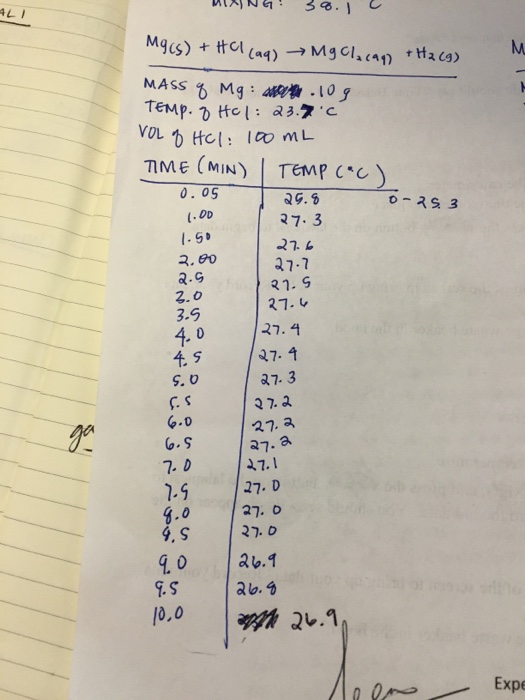 MIXING: 38.1 C
ALI
Mg(s) + HCl (aq) → MgCl₂ (aq) + H₂ (g)
MASS of Mg: .10 g
TEMP. of HCl: 23.7 °C
VOL of HCl: 100 mL
TIME (MIN) TEMP (°C)
0.05 25.8 0-25.3
1.00 27.3
1.50 27.6
2.00 27.7
2.5 27.5
3.0 27.6
3.5
4.0 27.4
4.5 27.4
5.0 27.3
5.5 27.2
6.0 27.2
6.5 27.2
7.0 27.1
7.5 27.0
8.0 27.0
8.5 27.0
9.0 26.9
9.5 26.8
10.0 26.9
ga
Expe